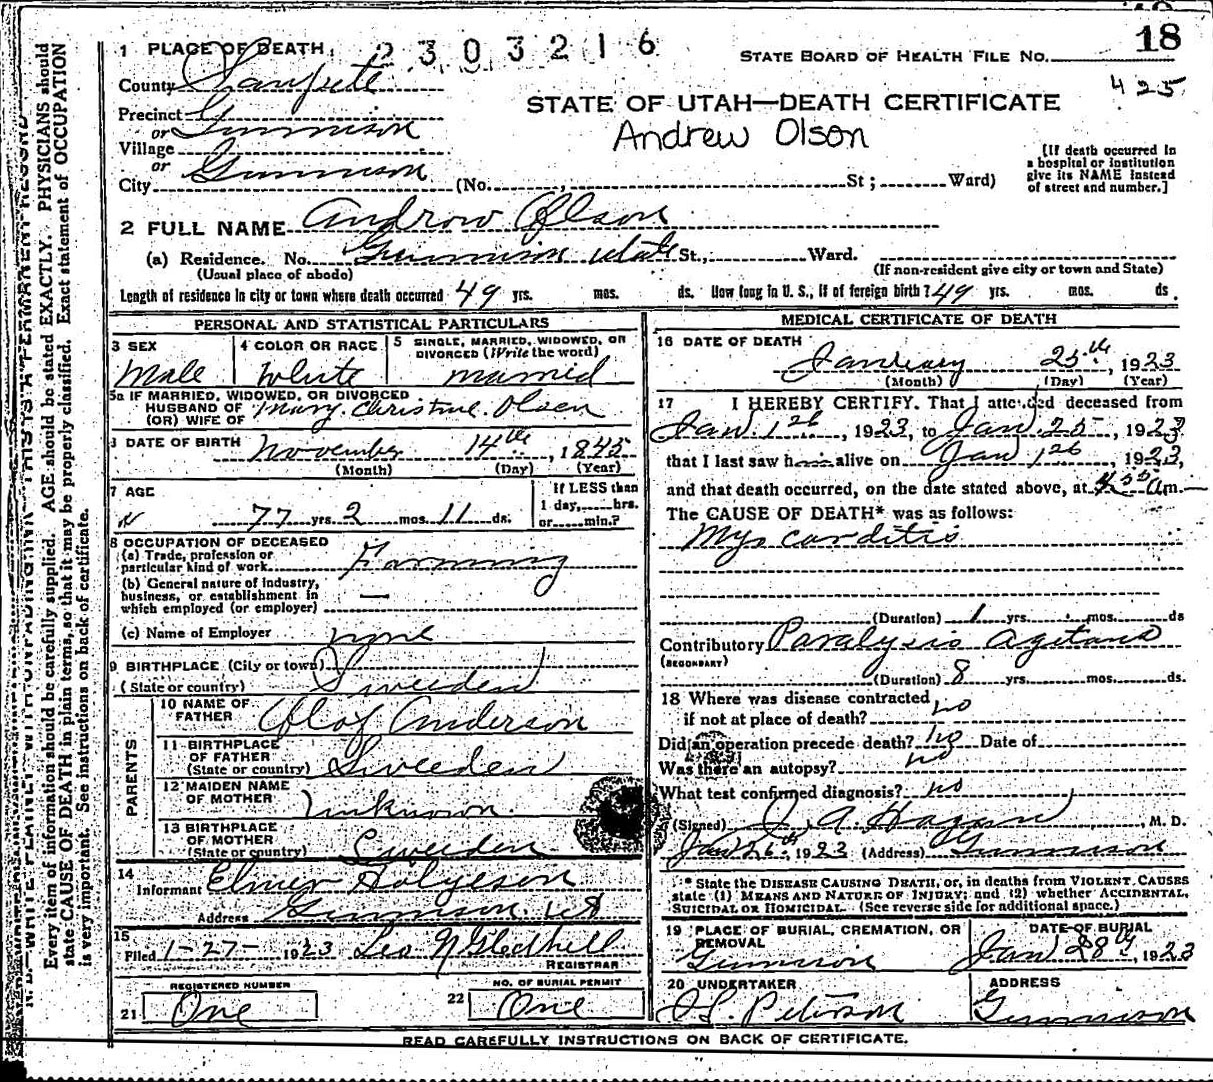 18
2303216
1 PLACE OF DEATH
STATE BOARD OF HEALTH FILE NO.
425
County Sanpete
STATE OF UTAH—DEATH CERTIFICATE
Precinct Gunnison
or
Andrew Olson
Village
or
City Gunnison (No. St; Ward)
[If death occurred in
a hospital or institution
give its NAME instead
of street and number.]
2 FULL NAME Andrew Olson
(a) Residence. No. Gunnison Utah St., Ward.
(Usual place of abode) (If non-resident give city or town and State)
Length of residence in city or town where death occurred 49 yrs. mos. ds. How long in U. S., if of foreign birth? 49 yrs. mos. ds.
PERSONAL AND STATISTICAL PARTICULARS
3 SEX 4 COLOR OR RACE 5 SINGLE, MARRIED, WIDOWED, OR
DIVORCED (Write the word)
Male White married
5a IF MARRIED, WIDOWED, OR DIVORCED
HUSBAND OF
(OR) WIFE OF Mary Christine Olsen
DATE OF BIRTH November 14th, 1845
(Month) (Day) (Year)
7 AGE If LESS than
1 day, hrs.
77 yrs. 2 mos. 11 ds. or min.?
8 OCCUPATION OF DECEASED
(a) Trade, profession or
particular kind of work Farming
(b) General nature of industry,
business, or establishment in
which employed (or employer) —
(c) Name of Employer none
9 BIRTHPLACE (City or town)
(State or country) Sweeden
PARENTS
10 NAME OF
FATHER Olof Anderson
11 BIRTHPLACE
OF FATHER
(State or country) Sweeden
12 MAIDEN NAME
OF MOTHER Unknown.
13 BIRTHPLACE
OF MOTHER
(State or country) Sweeden
14
Informant Elmer Holgeson
Address Gunnison. Ut
15
Filed 1-27- 1923 Leo N Gledhill
REGISTRAR
REGISTERED NUMBER NO. OF BURIAL PERMIT
21 One 22 One
MEDICAL CERTIFICATE OF DEATH
16 DATE OF DEATH
January 25th, 1923
(Month) (Day) (Year)
17 I HEREBY CERTIFY. That I attended deceased from
Jan. 1st, 1923, to Jan. 25, 1923
that I last saw h alive on Jan 1st, 1923,
and that death occurred, on the date stated above, at Am.
The CAUSE OF DEATH* was as follows:
Myocarditis
(Duration) 1 yrs. mos. ds
Contributory Paralysis agitans
(SECONDARY)
(Duration) 8 yrs. mos. ds.
18 Where was disease contracted
if not at place of death? no
Did an operation precede death? No Date of
Was there an autopsy? no
What test confirmed diagnosis? no
(Signed) J. A. Hagan, M. D.
Jan 26th, 1923 (Address) Gunnison
* State the DISEASE CAUSING DEATH, or, in deaths from VIOLENT CAUSES
state (1) MEANS AND NATURE OF INJURY; and (2) whether ACCIDENTAL,
SUICIDAL OR HOMICIDAL. (See reverse side for additional space.)
19 PLACE OF BURIAL, CREMATION, OR
REMOVAL
Gunnison
DATE OF BURIAL
Jan 28th, 1923
20 UNDERTAKER ADDRESS
Peterson Gunnison
READ CAREFULLY INSTRUCTIONS ON BACK OF CERTIFICATE.
Every item of information should be carefully supplied. AGE should be stated EXACTLY. PHYSICIANS should
state CAUSE OF DEATH in plain terms, so that it may be properly classified. Exact statement of OCCUPATION
is very important. See instructions on back of certificate.